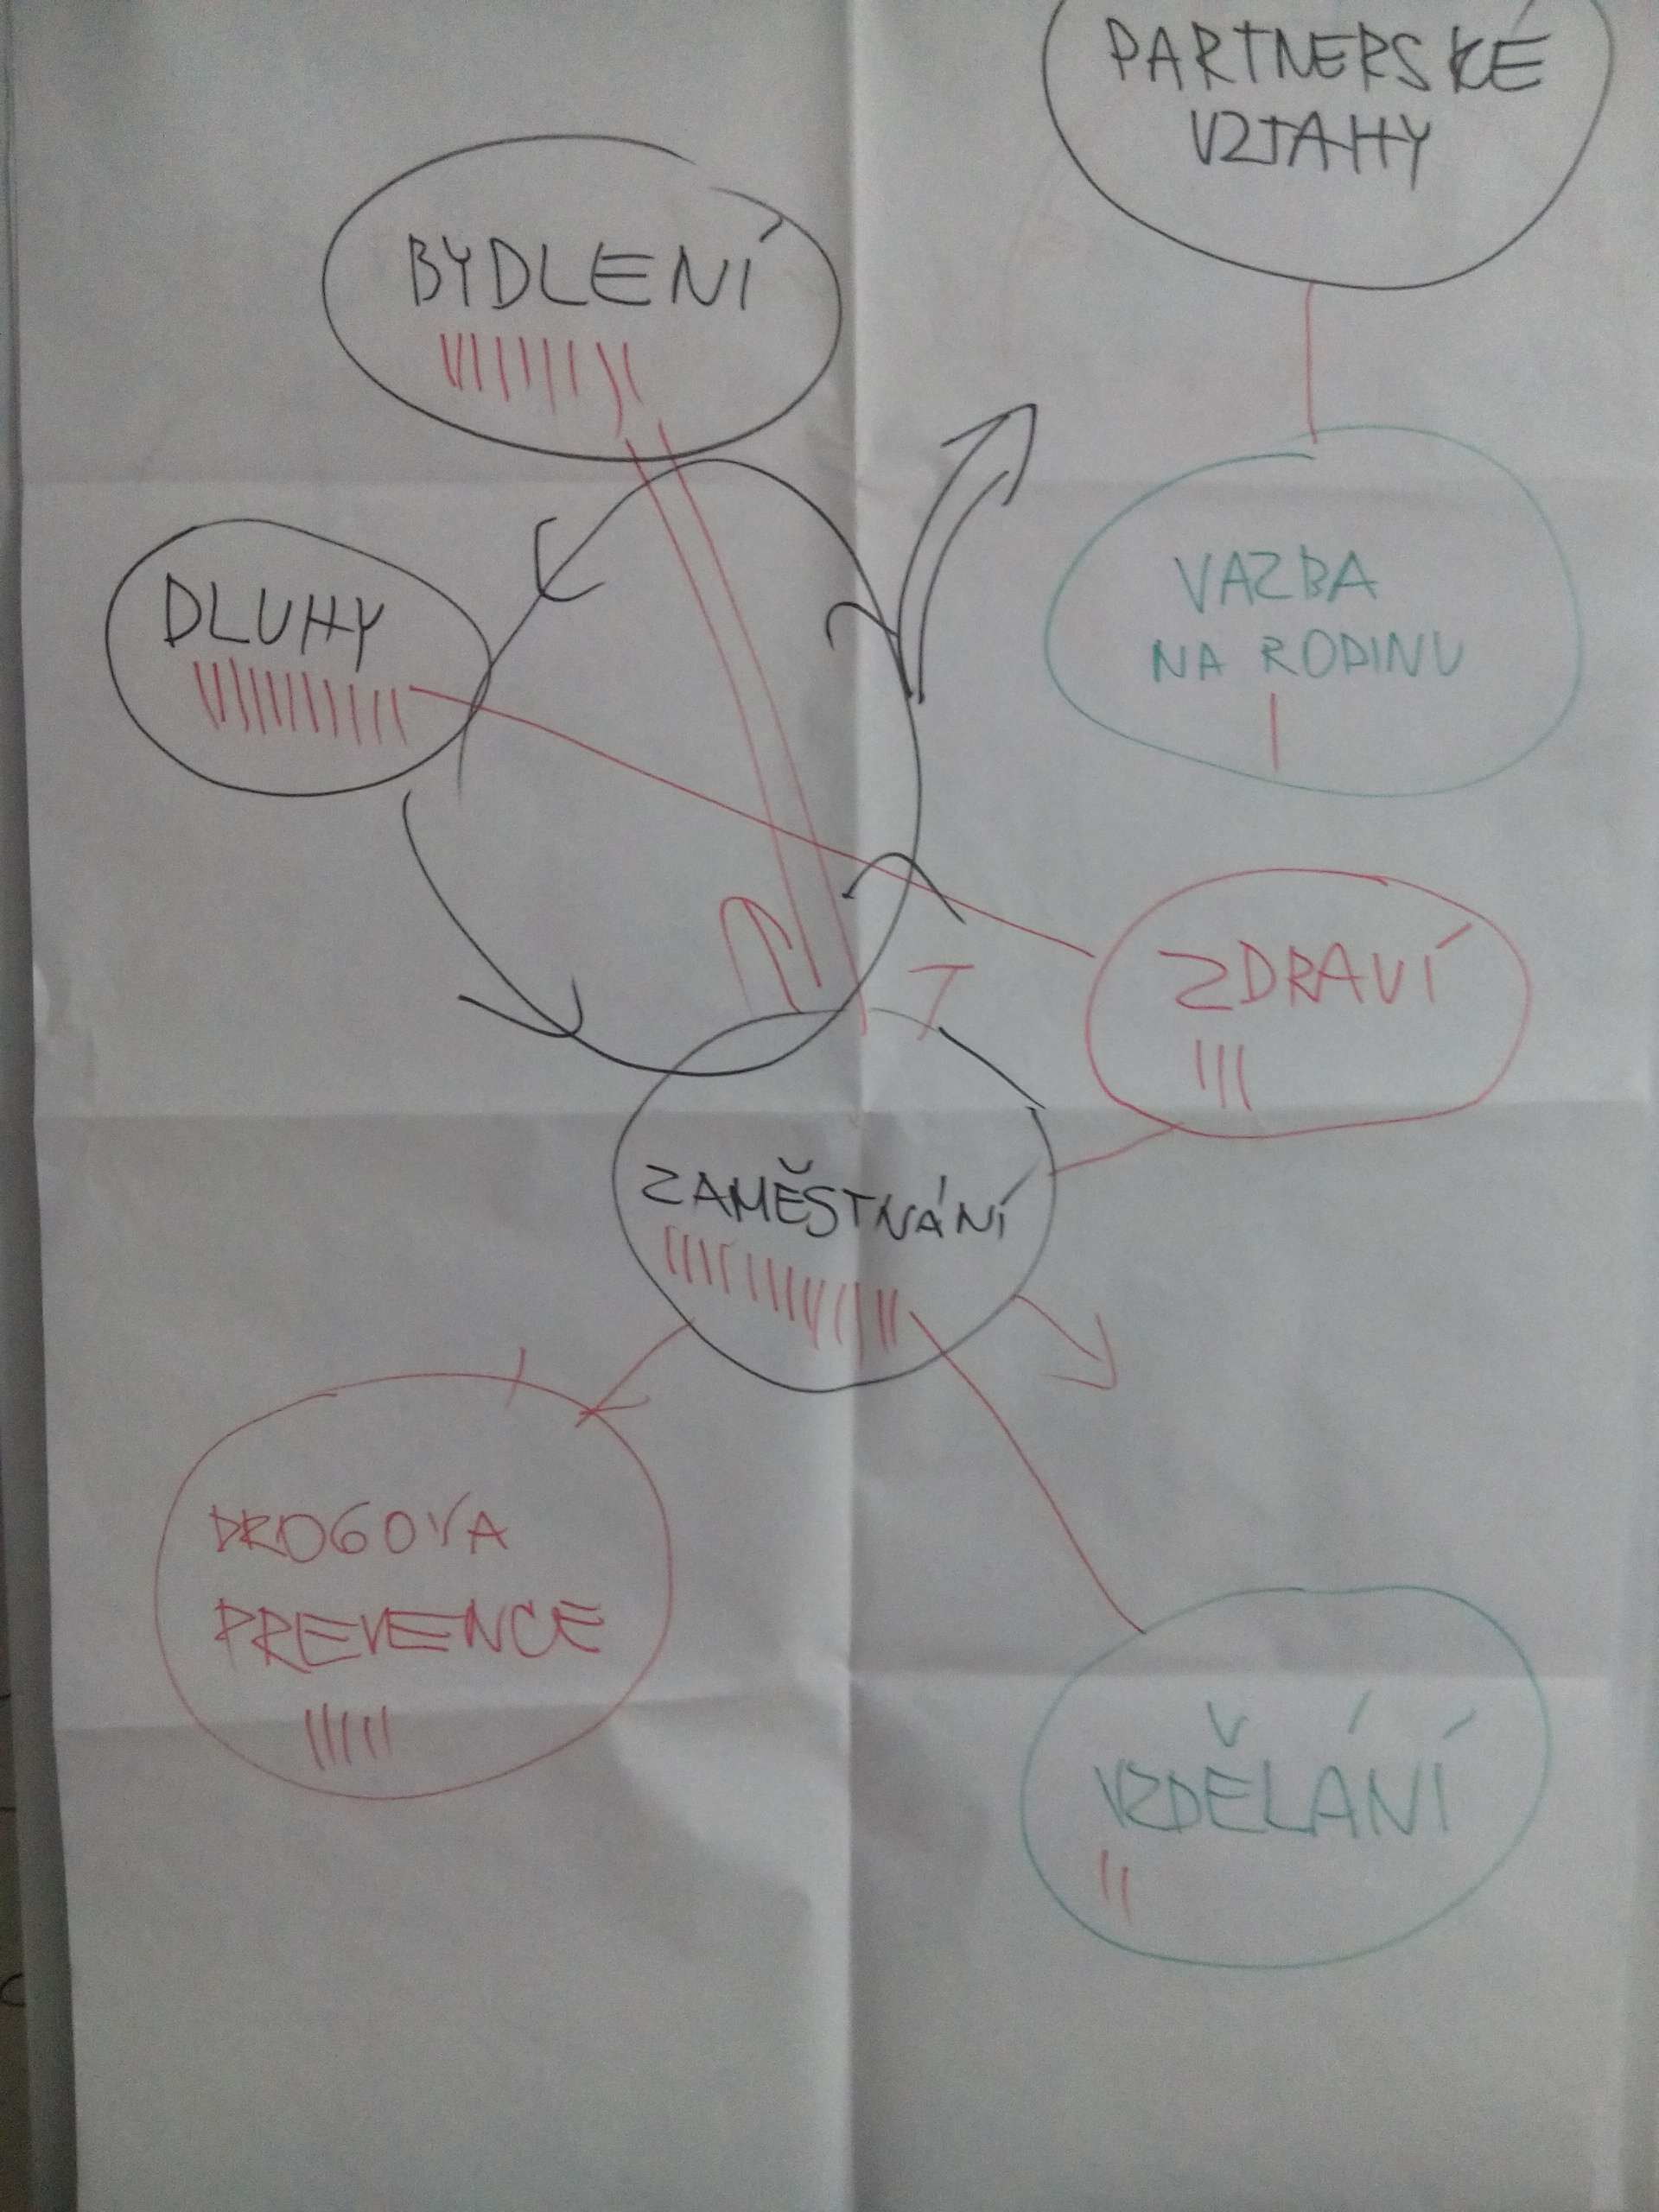 PARTNERSKÉ
VZTAHY
BYDLENÍ
VAZBA
NA RODINU
DLUHY
ZDRAVÍ
ZAMĚSTNÁNÍ
DROGOVA
PREVENCE
VZDĚLÁNÍ